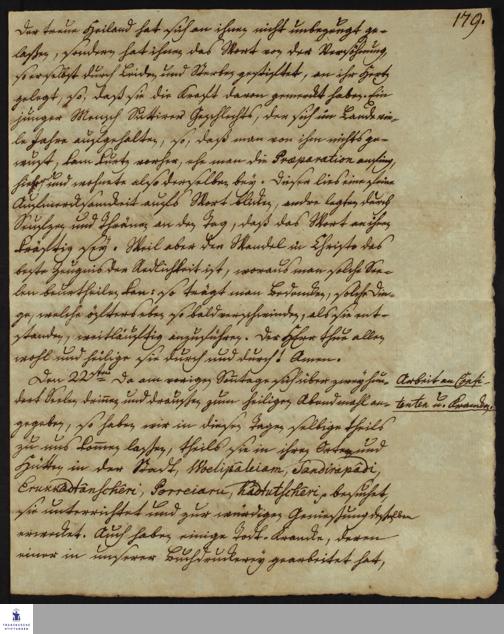 179.
Der treue Heiland hat sich an ihnen nicht unbezeugt ge-
laßen, sondern hat ihnen das Wort von der Versöhnung,
so er selbst durch Leiden und Sterben gestifftet, an ihr Hertz
gelegt, so, daß sie die Krafft davon gemerckt haben. Ein
junger Mensch Geschlechts, der sich im Lande vie-
le Jahre aufgehalten, so, daß man von ihm nichts ge-
wust, kam kurtz vorher, ehe man die Præparation anfing,
hieher und wohnte also derselben bey. Dieser lies eine feine
Aufmercksamkeit aufs Wort blicken, andre legten durch
Seufzen und Thränen an den Tag, daß das Wort an ihnen
kräftig sey. Weil aber der Wandel in Christo das
beste Zeugnis der Redlichkeit ist, woraus man solche See-
len beurtheilen kan: so trägt man Bedencken, solche Din-
ge, welche öfters eben so bald verschwinden, als sie ent-
standen, weitläuftig anzuführen. Der Herr thue allen
wohl und heilige sie durch und durch! Amen.
Den 22ten Da am vorigen Sontage sich über zwey hun-
dert Seelen drinnen und draussen zum heiligen Abendmahl an-
gegeben, so haben wir in diesen Tagen selbige theils
zu uns kommen laßen, theils sie in ihren Orten und
Hütten in der Stadt, Woelipaleiam, Sandirapadi,
Erukkadtantscheri, Porreiaru, Kadtutscheri, besucht,
sie unterrichtet und zur würdigen Genießung deßelben
erwecket. Auch haben einige Todt-Krancke, deren
einer in unserer Buchdruckerey gearbeitet hat,
Arbeit an Confi-
tenten u. Krancken.
FRANCKESCHE
STIFTUNGEN